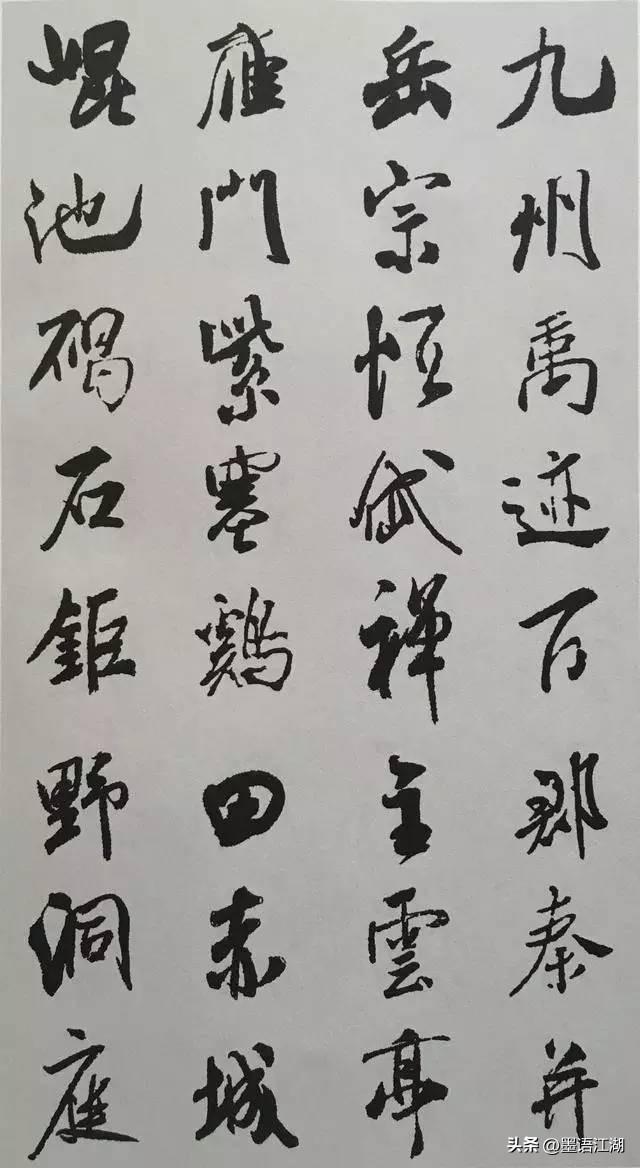 九州禹迹百郡秦并
岳宗恒岱禅主雲亭
雁門紫塞鷄田赤城
昆池碣石鉅野洞庭
头条@墨语江湖